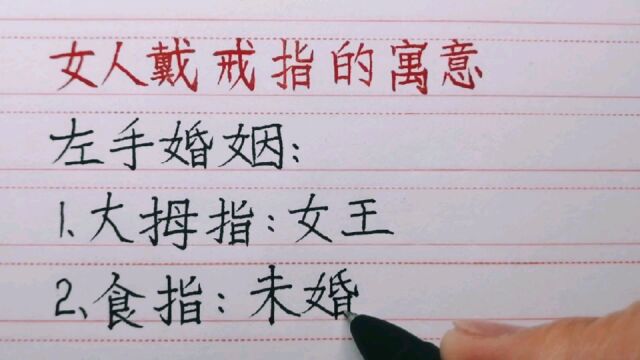 女人戴戒指的寓意
左手婚姻:
1、大拇指:女王
2、食指:未婚